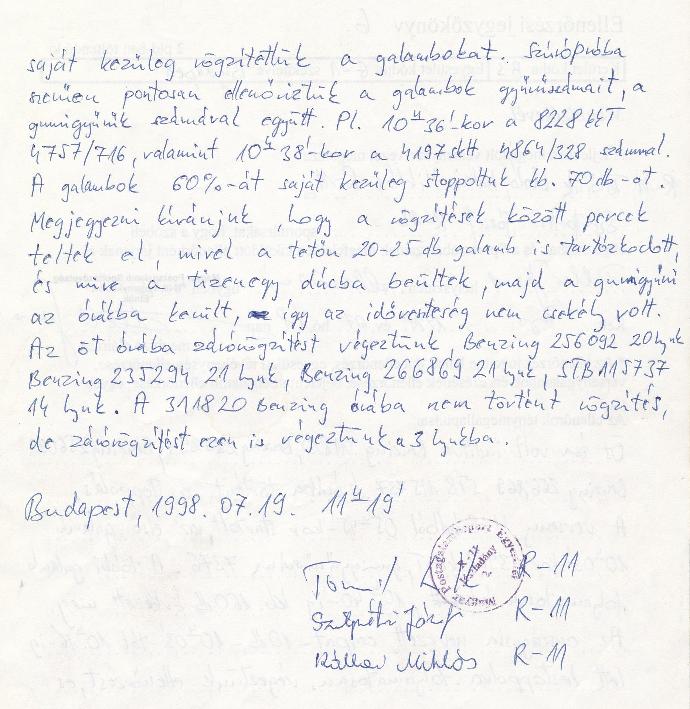 saját kezüleg rögzítettük a galambokat. Szúrópróba
szerüen pontosan ellenőriztük a galambok gyürüszámait, a
gumigyürük számával együtt. Pl. 10ʰ36'-kor a 8228 kkT
4757/716, valamint 10ʰ38'-kor a 4197 sktt 4864/328 számmal.
A galambok 60%-át saját kezüleg stoppoltuk kb. 70 db-ot.
Megjegyezni kívánjuk hogy a rögzítések között percek
teltek el mivel a tetön 20-25 db galamb is tartózkodott,
és mire a tizenegy dúcba beültek, majd a gumigyürü
az órákba került, így az idöveszteség nem csekély volt.
Az öt órába zárórögzítést végeztünk, Benzing 256092 20 lyuk
Benzing 235294 21 lyuk, Benzing 266869 21 lyuk, STB 115737
14 lyuk. A 311820 Benzing órába nem történt rögzítés,
de zárórögzítést ezen is végeztünk a 3 lyukba.
Budapest, 1998. 07. 19. 11ʰ19'
R-11
József R-11
Miklós R-11
Magyar Postagalambsport Egyesület